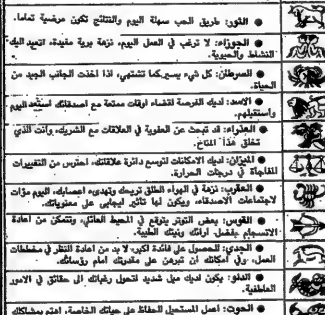 ● الثور: طريق الحب سهلة اليوم والنتائج تكون مرضية تماما.
● الجوزاء: لا ترغب في العمل اليوم، نزهة برية مفيدة، اتعيد اليك
النشاط والحيوية.
● السرطان: كل شيء يسير كما تشتهي، اذا اخذت الجانب الجيد من
الحياة.
● الاسد: لديك الفرصة لقضاء اوقات ممتعة مع اصدقائك استعد اليوم
وأستقبلهم.
● العذراء: قد تبحث عن العفوية في العلاقات مع الشريك، وأنت الذي
تخلق هذا المناخ.
● الميزان: لديك الامكانات لتوسع دائرة علاقاتك، احترس من التغييرات
المفاجأة في درجات الحرارة.
● العقرب: نزهة في الهواء الطلق تريحك وتهدىء اعصابك، اليوم مؤات
لاجتماعات الاصدقاء، ويكون لها تاثير ايجابي على معنوياتك.
● القوس: بعض التوتر يتوقع في المحيط العائلي، وتتمكن من اعادة
الانسجام بفضل ارائك ونيتك الطيبة.
● الجدي: للحصول على فائدة اكبر، لا بد من اعادة النظر في مخططات
العمل، وفي امكانك ان تبرهن على مقدرتك امام رؤسائك.
● الدلو: يكون لديك ميل شديد لتحول رغباتك الى حقائق في الامور
العاطفية.
● الحوت: اعمل المستحيل للحفاظ على حياتك الخاصة، اهتم بمشاكلك